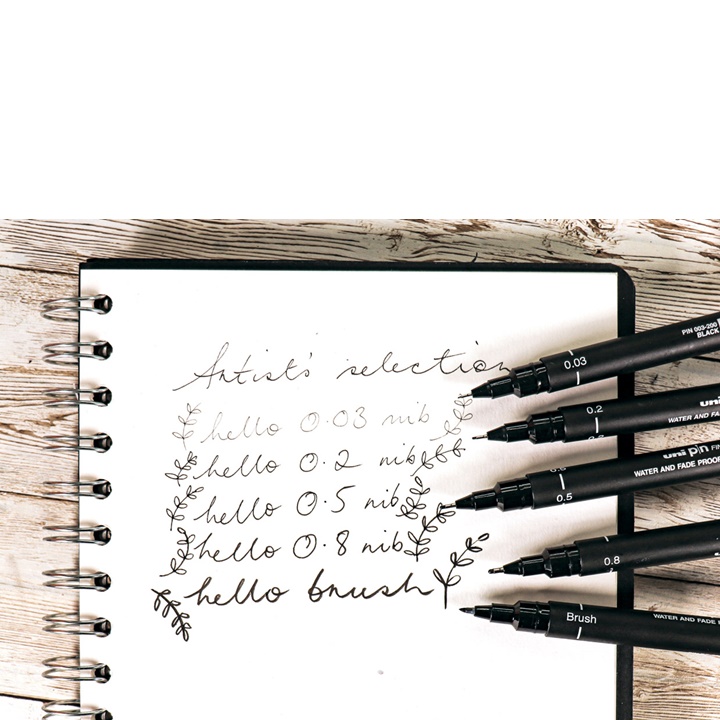 Artist's selection
hello 0.03 nib
hello 0.2 nib
hello 0.5 nib
hello 0.8 nib
hello brush
PIN 003-200
BLACK
0.03
uni
0.2
WATER AND FA
uni pin FIN
WATER AND FADE PROOF
0.5
0.8
Brush
WATER AND FADE